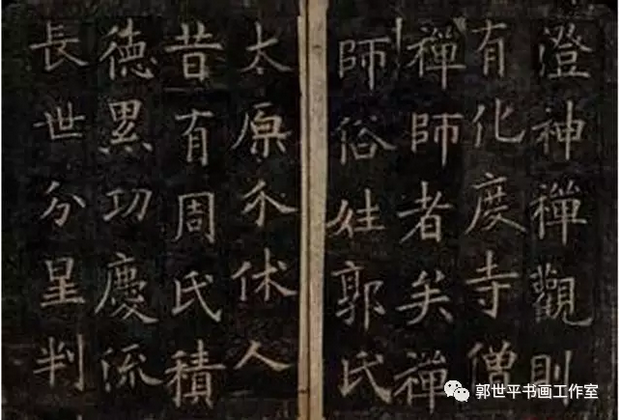 澄神禪觀則
有化度寺僧
禪師者矣禪
師俗姓郭氏
太原介休人
昔有周氏積
德累功慶流
長世分星判
郭世平书画工作室